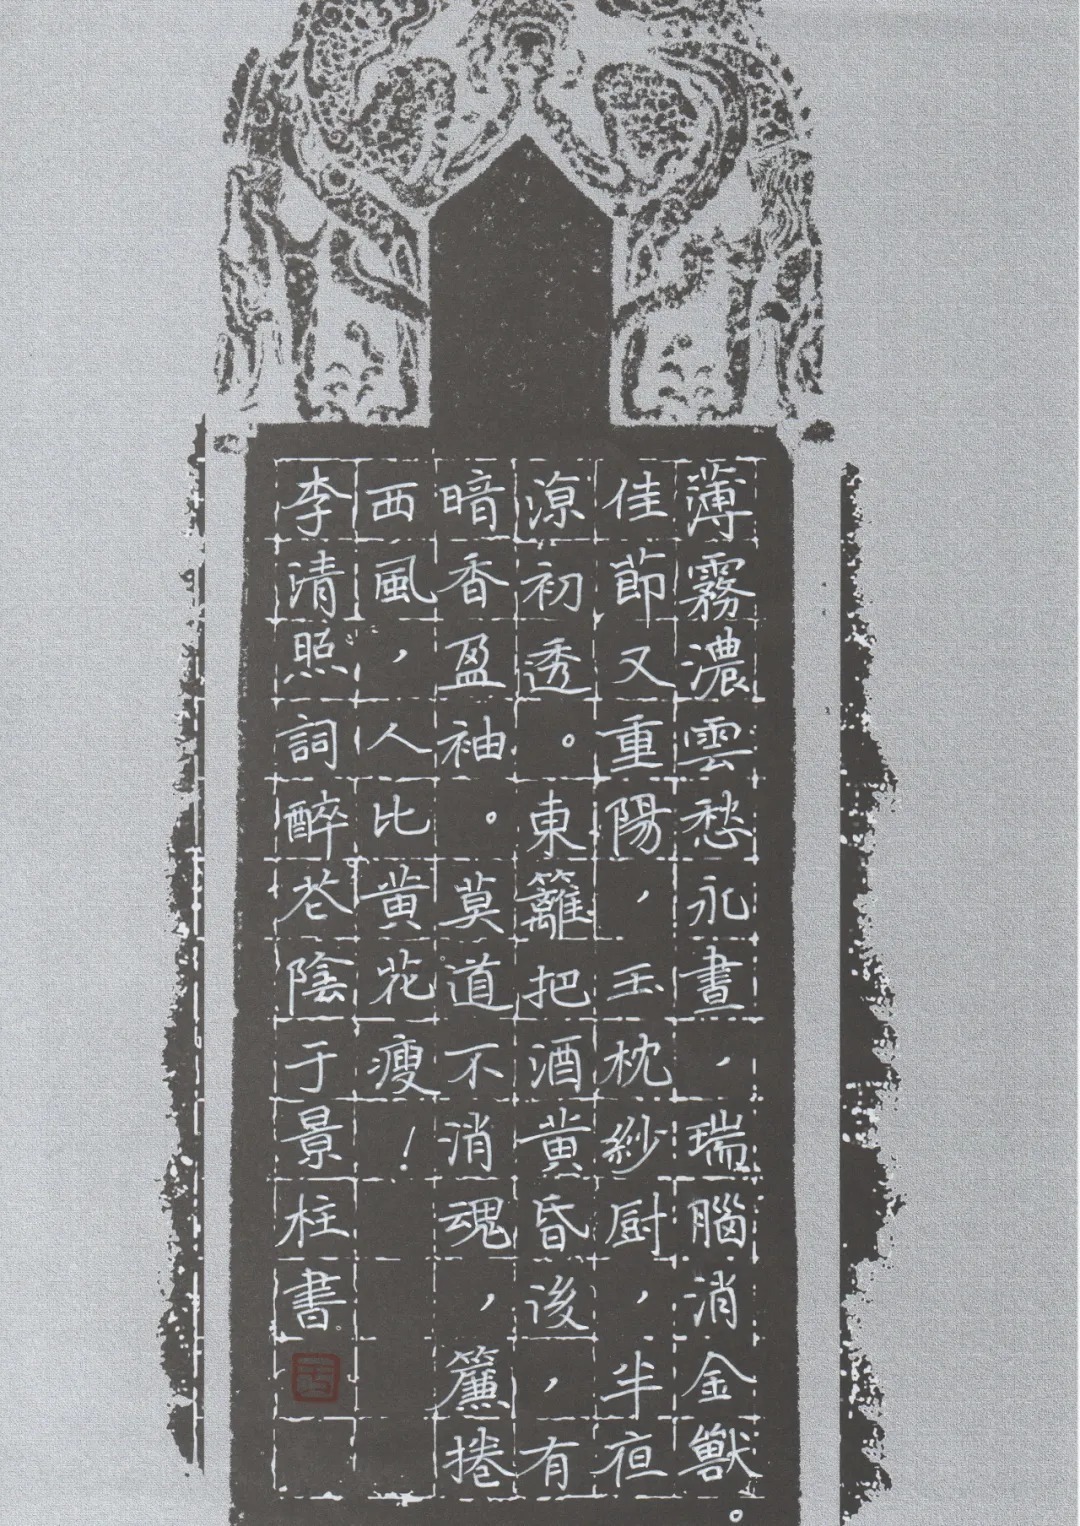 薄霧濃雲愁永晝，瑞腦消金獸。
佳節又重陽，玉枕紗厨，半夜
涼初透。東籬把酒黃昏後，有
暗香盈袖。莫道不消魂，簾捲
西風，人比黃花瘦！
李清照詞醉花陰于景柱書